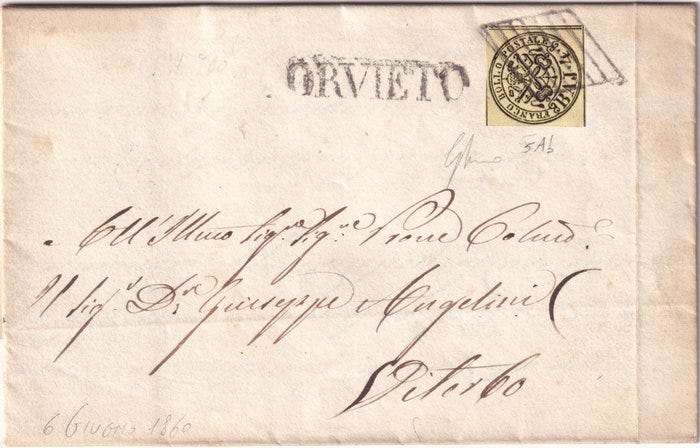 ORVIETO
FRANCO BOLLO POSTALE
BAJ
5Ab
All'Illmo Sigr. Sigre Prone Colmo
Il Sigr. Dr. Giuseppe Angelini
Viterbo
6 Giugno 1860